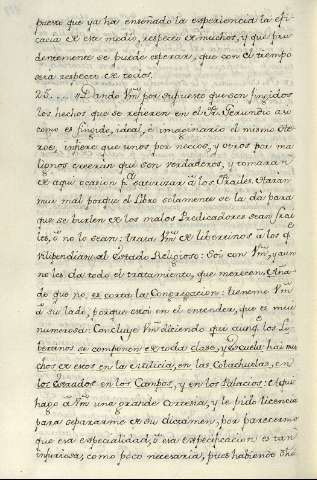 puesto que ya ha enseñado la experiencia la efi-
cacia de este medio, respecto de muchos, y que pru-
dentemente se puede esperar, que con el tiempo
será respecto de todos.
25.... Dando Vm̃ por supuesto que son fingidos
los hechos que se refieren en el Fr. Gerundio asi
como es fingido, ideal, è imaginario el mismo He-
roe, infiere que unos por necios, y otros por ma-
lignos creerán que son verdaderos, y tomarán
de aqui ocasion pa. satirizar à los Frailes. Harán
mui mal porque el Libro solamente se la dà para
que se burlen de los malos Predicadores sean frai-
les, ò no lo sean: trata Vm̃ de libertinos à los qe.
vilipendian al Estado Religioso: Soi con Vm̃, y aun
no les da todo el tratamiento, que merecen. Aña-
de que no es corta la Congregacion: tieneme Vm̃
à su lado, porque estoi en el entender, que es mui
numerosa: Concluye Vm̃ diciendo que aunq. los Li-
bertinos se componen de toda clase, y Escuela hai mu-
chos de esos en la milicia, en las Cobachuelas, en
los Estrados en los Campos, y en los Palacios: Aqui
hago à Vm̃ una grande cortesia, y le pido licencia
para separarme de su dictamen, por parecerme
que esa especialidad, ò esa especificacion es tan
injuriosa, como poco necesaria, pues habiendo dho